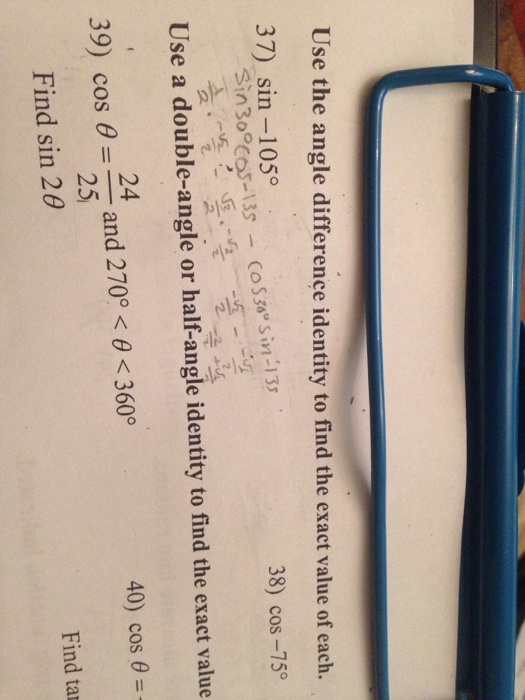 Use the angle difference identity to find the exact value of each.
37) sin −105°
38) cos −75°
sin30°cos-135 - cos30°sin-135
Use a double-angle or half-angle identity to find the exact value
39) cos θ = 24/25 and 270° < θ < 360°
40) cos θ =
Find sin 2θ
Find tan